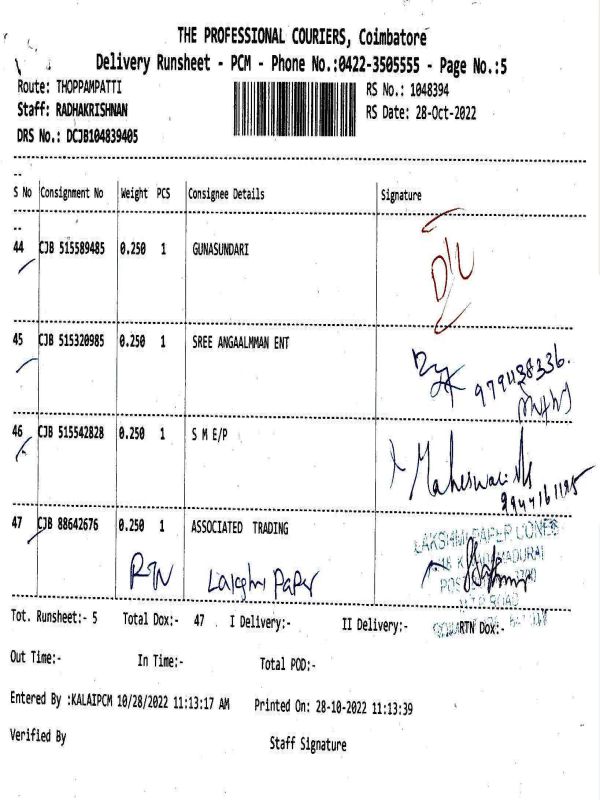 THE PROFESSIONAL COURIERS, Coimbatore
Delivery Runsheet - PCM - Phone No.:0422-3505555 - Page No.:5
Route: THOPPAMPATTI
RS No.: 1048394
Staff: RADHAKRISHNAN
RS Date: 28-Oct-2022
DRS No.: DCJB104839405
S No Consignment No Weight PCS Consignee Details Signature
44 CJB 515589485 0.250 1 GUNASUNDARI
D/L
45 CJB 515320985 0.250 1 SREE ANGAALMMAN ENT
46 CJB 515542828 0.250 1 S M E/P
Maheswari
47 CJB 88642676 0.250 1 ASSOCIATED TRADING
LAKSHMI PAPER CONES
RTN Lakshmi Paper
Tot. Runsheet:- 5 Total Dox:- 47 I Delivery:- II Delivery:- RTN Dox:-
Out Time:- In Time:- Total POD:-
Entered By :KALAIPCM 10/28/2022 11:13:17 AM Printed On: 28-10-2022 11:13:39
Verified By Staff Signature